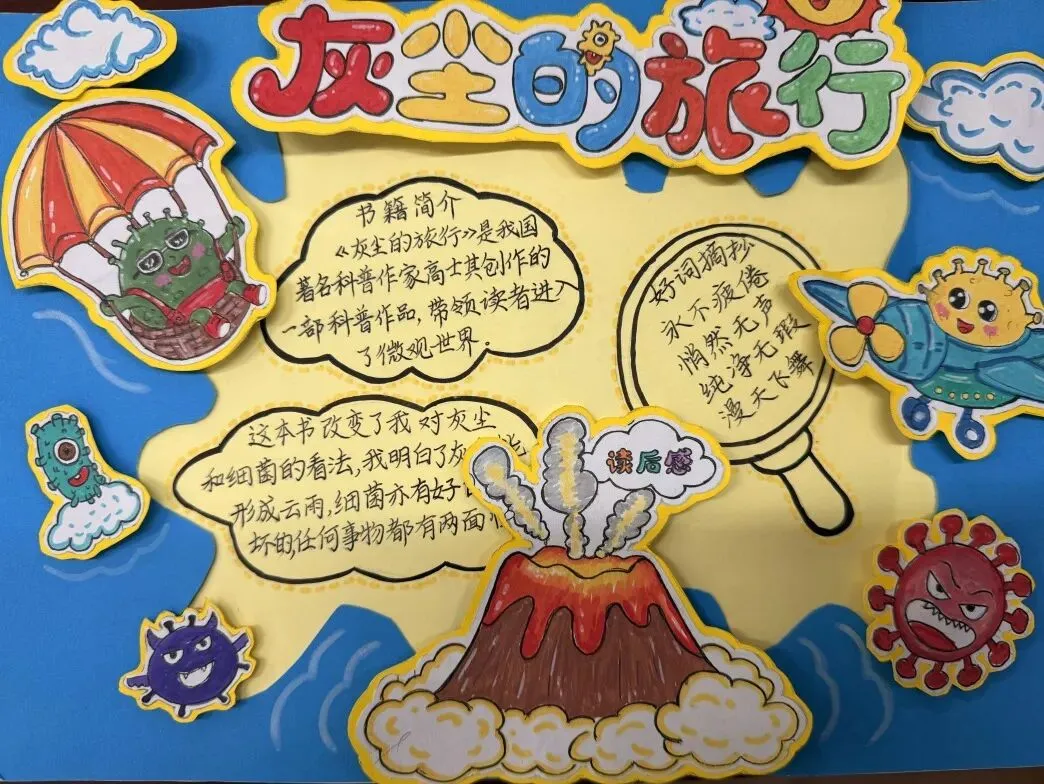 灰尘的旅行
书籍简介
《灰尘的旅行》是我国
著名科普作家高士其创作的
一部科普作品,带领读者进入
了微观世界。
好词摘抄
永不疲倦
悄然无声
纯净无瑕
漫天飞舞
这本书改变了我对灰尘
和细菌的看法,我明白了灰
形成云雨,细菌亦有好
坏的,任何事物都有两面
读后感